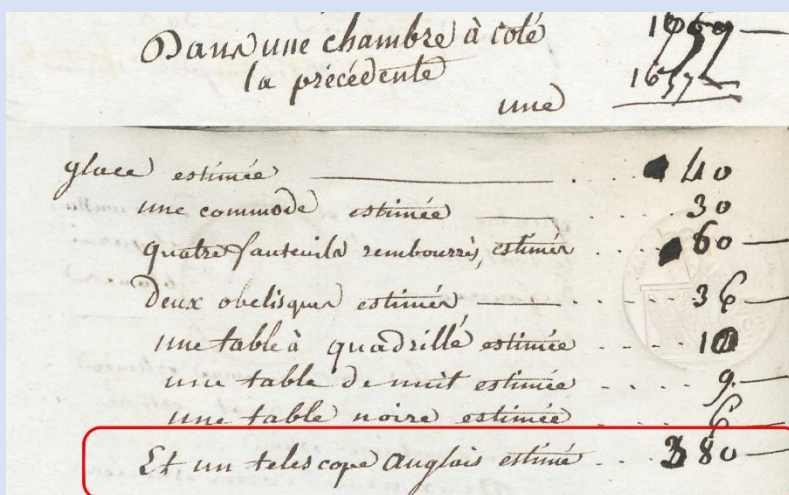 Dans une chambre à coté
la précédente
une
glace estimée 40
une commode estimée 30
quatre fauteuils rembourrés, estimés 60
deux obelisques estimés 36
une table à quadrillé estimée
une table de nuit estimée 9
une table noire estimée 6
Et un telescope Anglais estimé 380